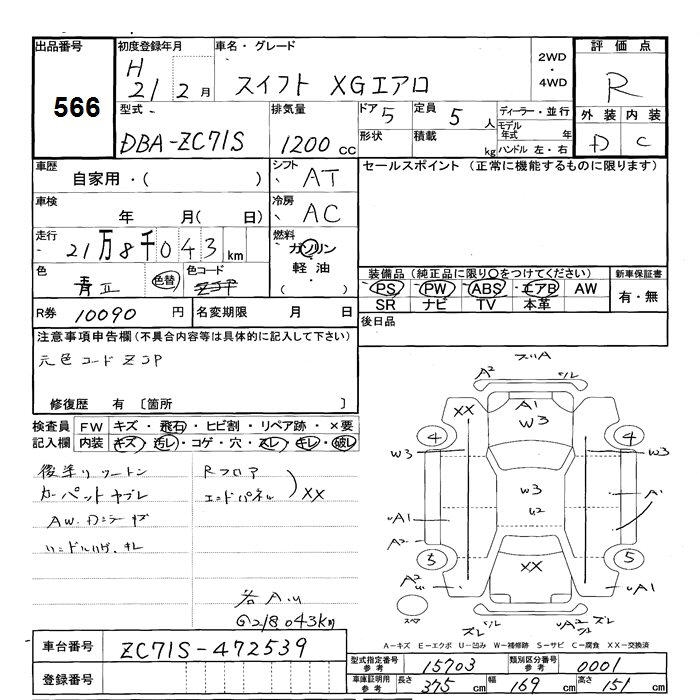 出品番号
566
初度登録年月
H 21 2月
車名・グレード
スイフト XGエアロ
2WD・4WD
評価点
R
外装 内装
D C
型式
DBA-ZC71S
排気量
1200 cc
ドア 5
定員 5 人
形状
積載 kg
ディーラー・並行
モデル年式 年
ハンドル 左・右
車歴
自家用・( )
シフト AT
車検
年 月( 日)
冷房 AC
走行
21万8千043km
燃料
ガソリン
軽油・
( )
色
青
色替
色コード
ZJP
セールスポイント (正常に機能するものに限ります)
装備品(純正品に限り○をつけてください)
PS PW ABS エアB AW
SR ナビ TV 本革
新車保証書
有・無
R券 10090 円
名変期限 月 日
後日品
注意事項申告欄(不具合内容等は具体的に記入して下さい)
元色コード ZJP
修復歴 有 〔箇所 〕
検査員記入欄
FW キズ・飛石・ヒビ割・リペア跡・×要
内装 キズ・汚レ・コゲ・穴・スレ・キレ・破レ
カーペットヤブレ
Rフロア
エンドパネル
XX
218043km
A² A1 W3
XX
4 4
W3 W3
W3
U2
A1
uA1
A²
5 5
XX
A²
uA1
スペア
ズレ
uA2
ズレ
A-キズ E-エクボ U-凹み W-補修跡 S-サビ C-腐食 XX-交換済
車台番号
ZC71S-472539
登録番号
型式指定番号 参考 15703
類別区分番号 参考 0001
車庫証明用 参考
長さ 375 cm
幅 169 cm
高さ 151 cm